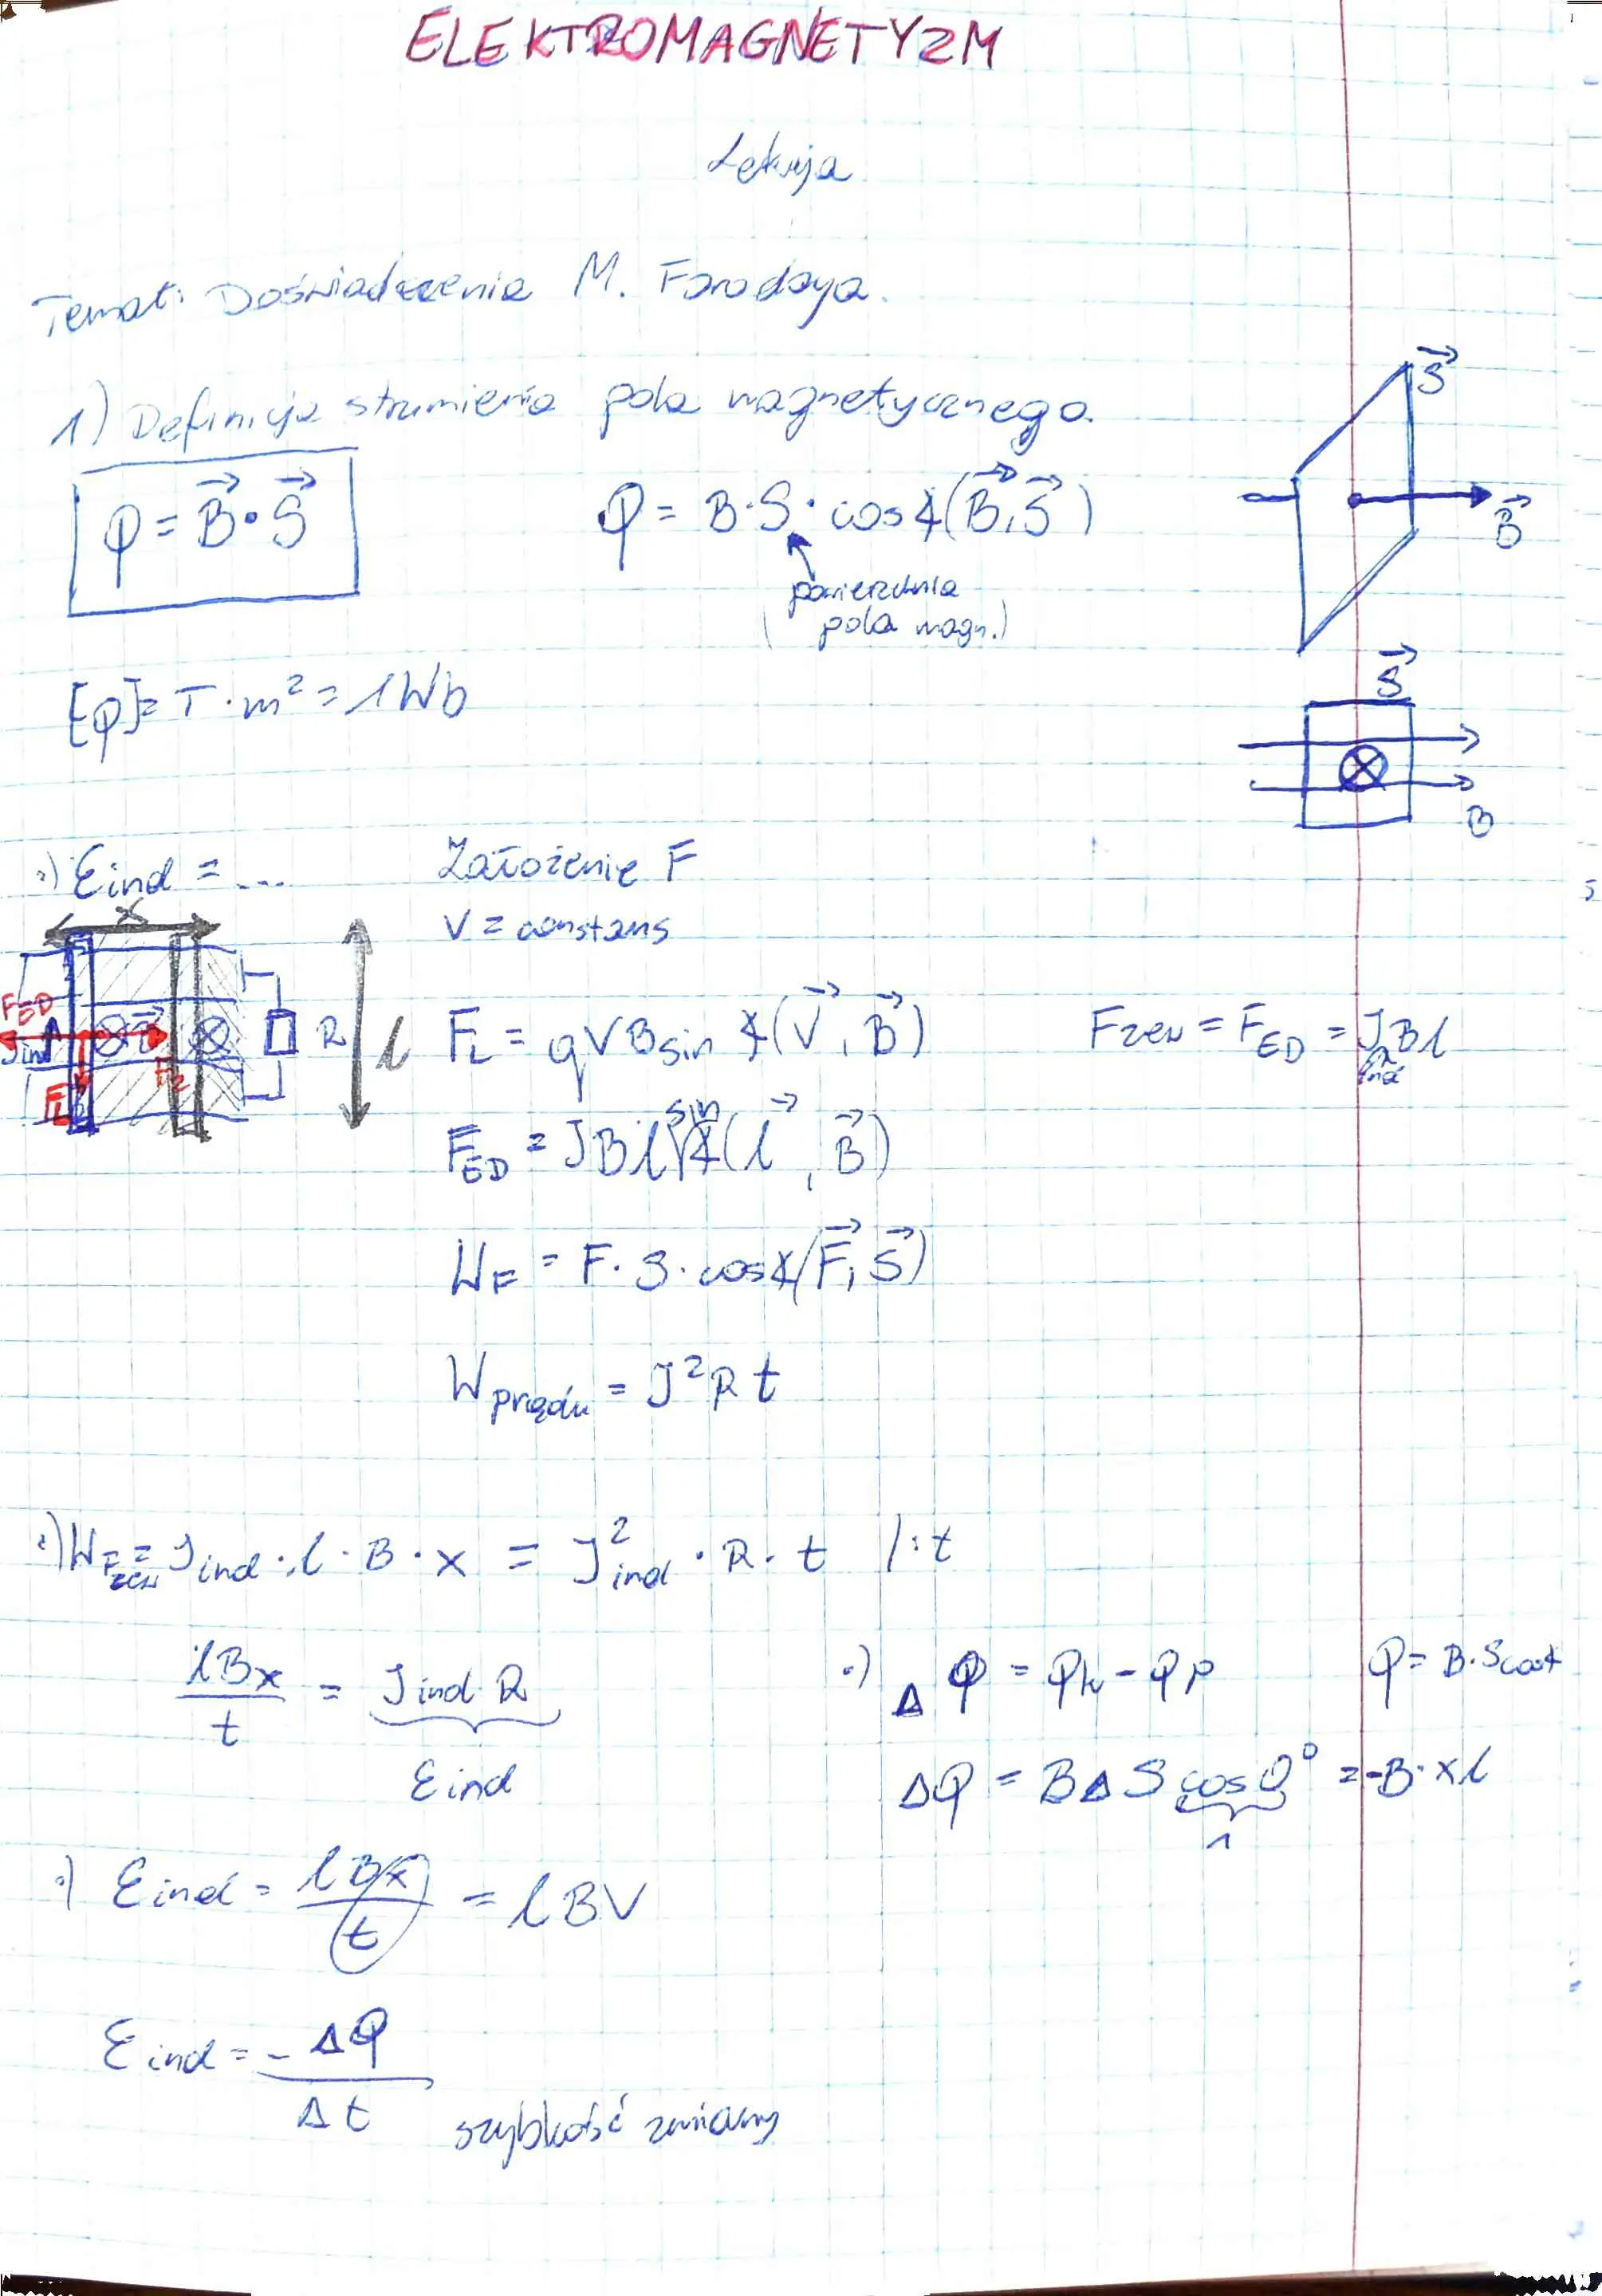 ELEKTROMAGNETYZM
Lekcja
Temat: Doświadczenia M. Faradaya.
1) Definicja strumienia pola magnetycznego.
φ = B⃗ • S⃗
φ = B·S · cos∢(B⃗, S⃗)
powierzchnia
(pola magn.)
S⃗
B⃗
[φ] = T · m² = 1Wb
S⃗
B
•) Eind = ...
Założenie F
V = constans
x
F_ED
Jind
F_L
F_z
R
l
F_L = qVB sin ∢(V⃗, B⃗)
Fzew = F_ED = J_ind B l
F_ED = J B l sin ∢(l⃗, B⃗)
W_F = F · S · cos∢(F⃗, S⃗)
W prądu = J² R t
•) W_Fzew = J ind · l · B · x = J²ind · R · t /:t
lBx / t = J ind · R
Eind
•) Δφ = φk - φp
φ = B·S cos∢
Δφ = BΔS cos 0° = -B·xl
1
•) Eind = lBx / t = lBV
Eind = - Δφ / Δt
szybkość zmiany